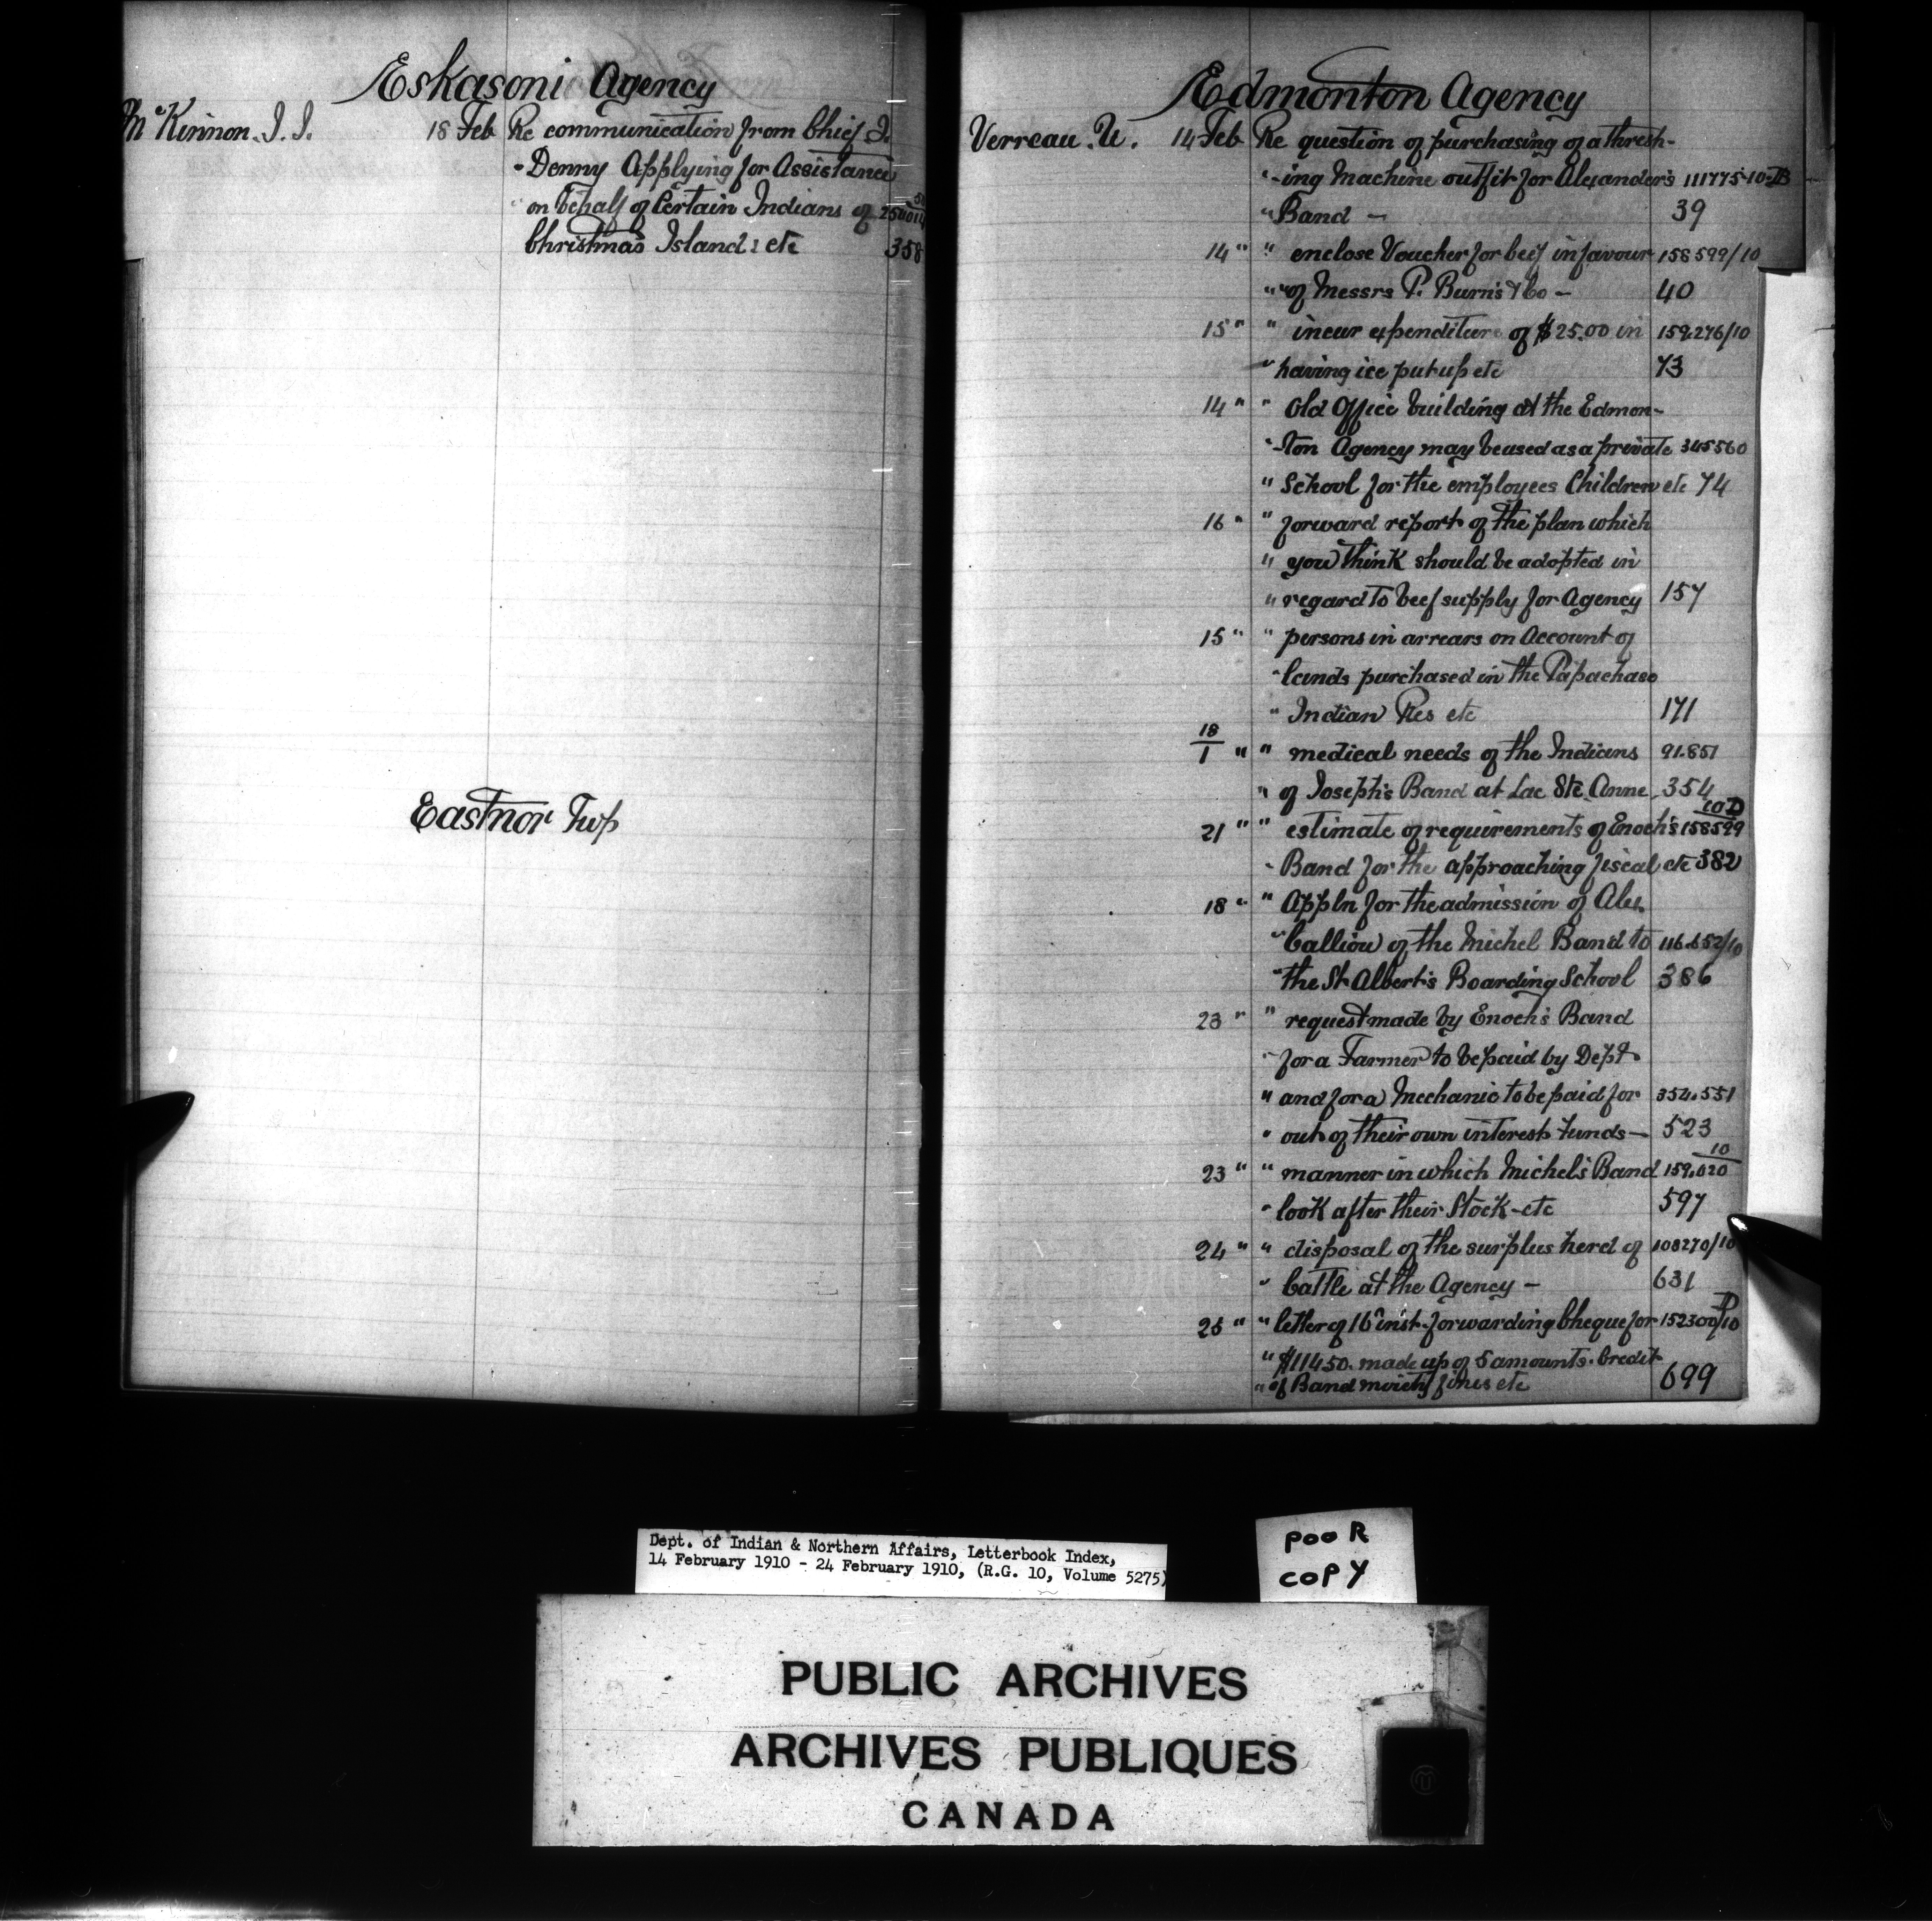 Eskasoni Agency
McKinnon. J. J. 18 Feb Re communication from Chief J.
" Denny Applying for Assistance
" on behalf of Certain Indians of
Christmas Island: etc 358
Eastnor Twp
Edmonton Agency
Verreau. U. 14 Feb Re question of purchasing of a thresh-
" -ing Machine outfit for Alexander's 111775-10-B
" Band — 39
14 " " enclose Voucher for beef in favour 158599/10
" " of Messrs P. Burns & Co — 40
15 " " incur expenditure of $25.00 in 159,276/10
" having ice put up etc 73
14 " " Old Office building at the Edmon-
" -ton Agency may be used as a private 345560
" School for the employees Children etc 74
16 " " forward report of the plan which
" you think should be adopted in
" regard to beef supply for Agency 157
15 " " persons in arrears on Account of
" lands purchased in the Papachase
" Indian Res etc 171
18/1 " " medical needs of the Indians 91.851
" of Joseph's Band at Lac Ste. Anne 354
21 " " estimate of requirements of Enoch's 158599 10D
" Band for the approaching fiscal etc 382
18 " " Appln for the admission of Alex.
" Calliou of the Michel Band to 116.652/10
" the St Albert's Boarding School 386
23 " " request made by Enoch's Band
" for a Farmer to be paid by Dept
" and for a Mechanic to be paid for 354.551
" out of their own interest funds — 523
23 " " manner in which Michel's Band 159.020 10
" look after their Stock - etc 597
24 " " disposal of the surplus herd of 108270/10
" Cattle at the Agency — 631
25 " " letter of 16th inst. forwarding Cheque for 152300/10 D
" $114.50. made up of 5 amounts. Credit
" of Band moiety fines etc 699
Dept. of Indian & Northern Affairs, Letterbook Index,
14 February 1910 - 24 February 1910, (R.G. 10, Volume 5275)
pooR
copy
PUBLIC ARCHIVES
ARCHIVES PUBLIQUES
CANADA